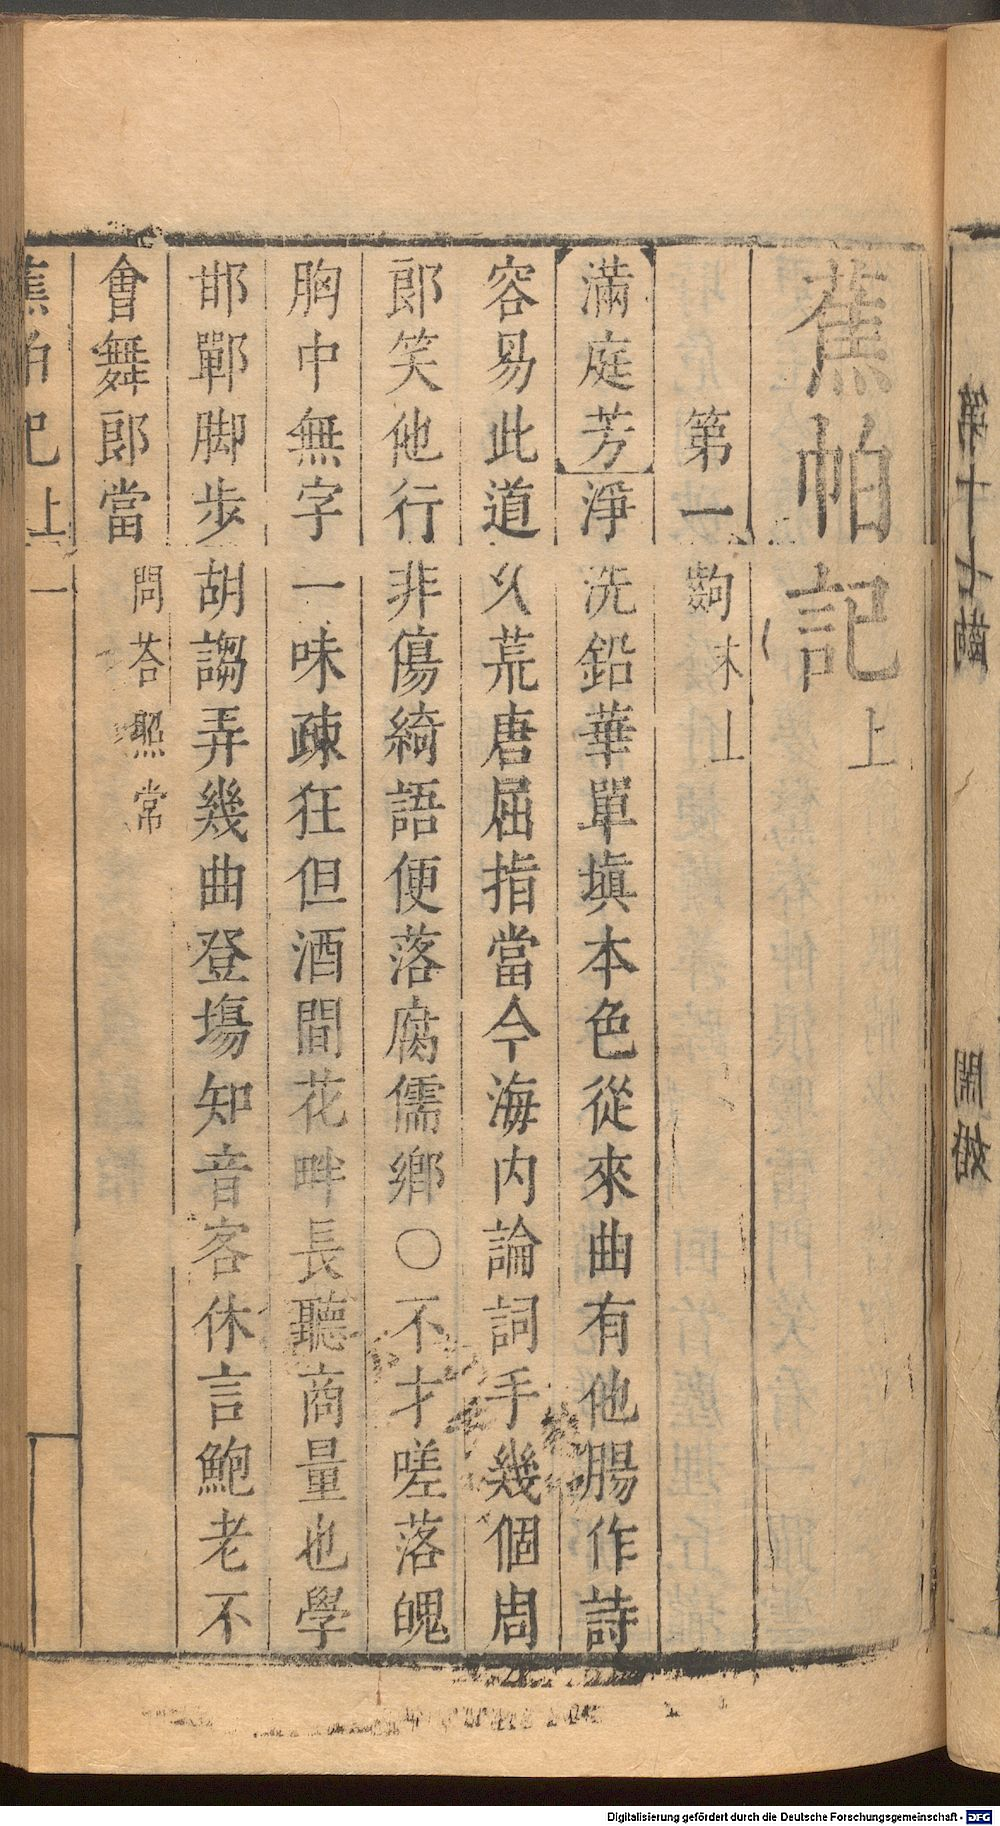 蕉帕記上
第一齣末上
滿庭芳淨洗鉛華單填本色從來曲有他腸作詩
容易此道久荒唐屈指當今海內論詞手幾個周
郎笑他行非傷綺語便落腐儒鄉○不才嗟落魄
胸中無字一味疎狂但酒間花畔長聽商量也學
邯鄲脚步胡謅弄幾曲登塲知音客休言鮑老不
會舞郎當問荅照常
蕉帕記上一
Digitalisierung gefördert durch die Deutsche Forschungsgemeinschaft - DFG